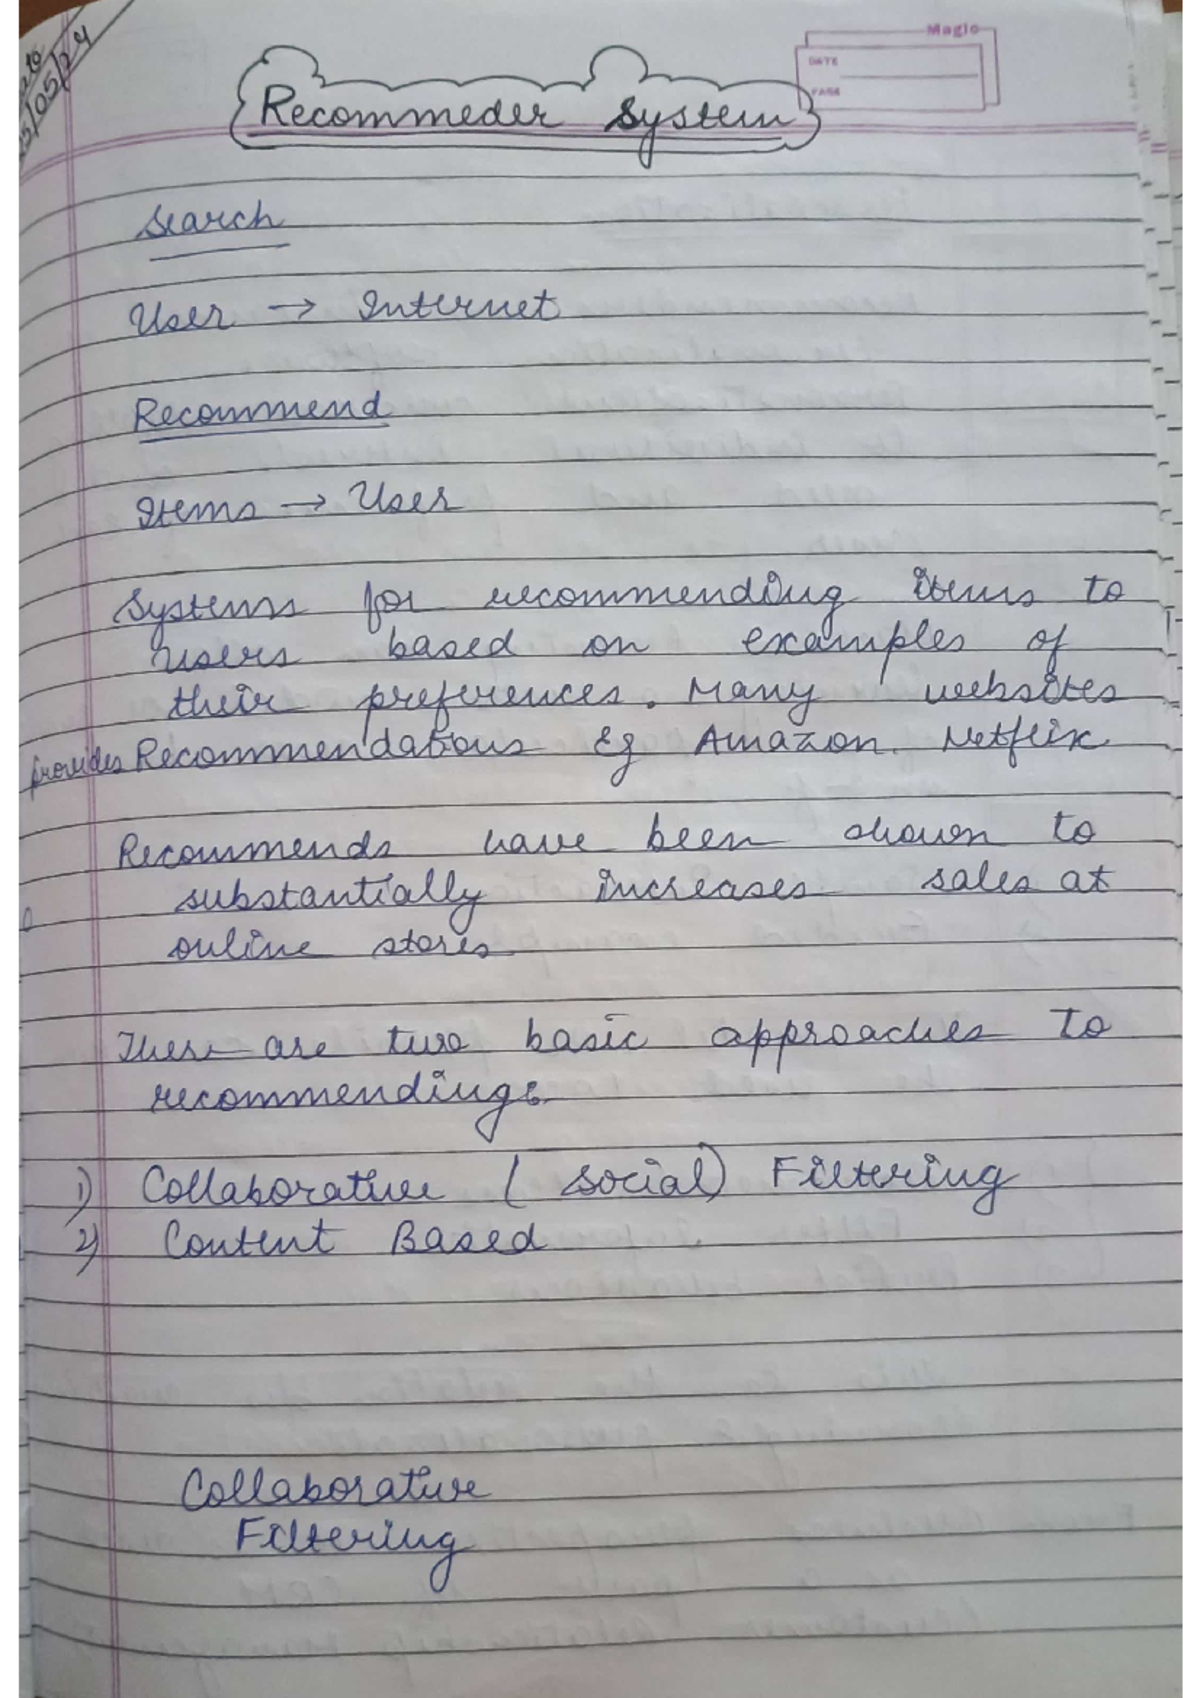 Magic
DATE
PAGE
Recommeder System
Search
User → Internet
Recommend
Items → User
Systems for recommending items to
users based on examples of
their preferences. Many websites
provides Recommendations Eg Amazon. Netflix
Recommends have been shown to
substantially increases sales at
online stores
There are two basic approaches to
recommendings.
1) Collaborative ( Social) Filtering
2) Content Based
Collaborative
Filtering